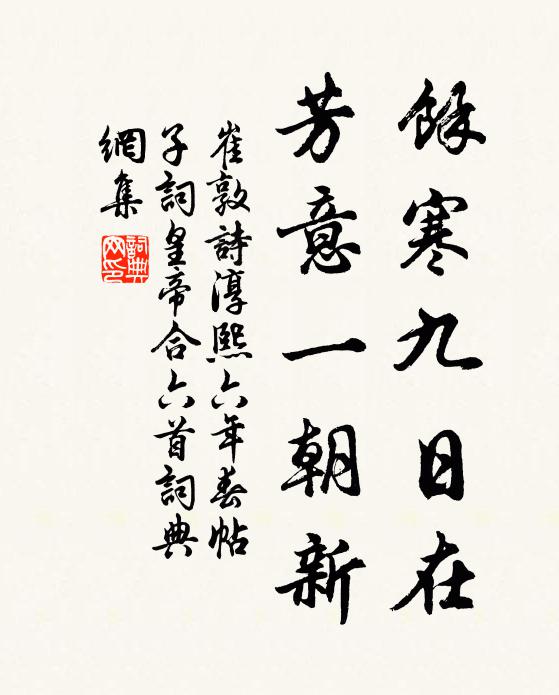 餘寒九日在
芳意一朝新
崔敦詩淳熙六年春帖
子詞皇帝合六首詞典
網集
詞典网印